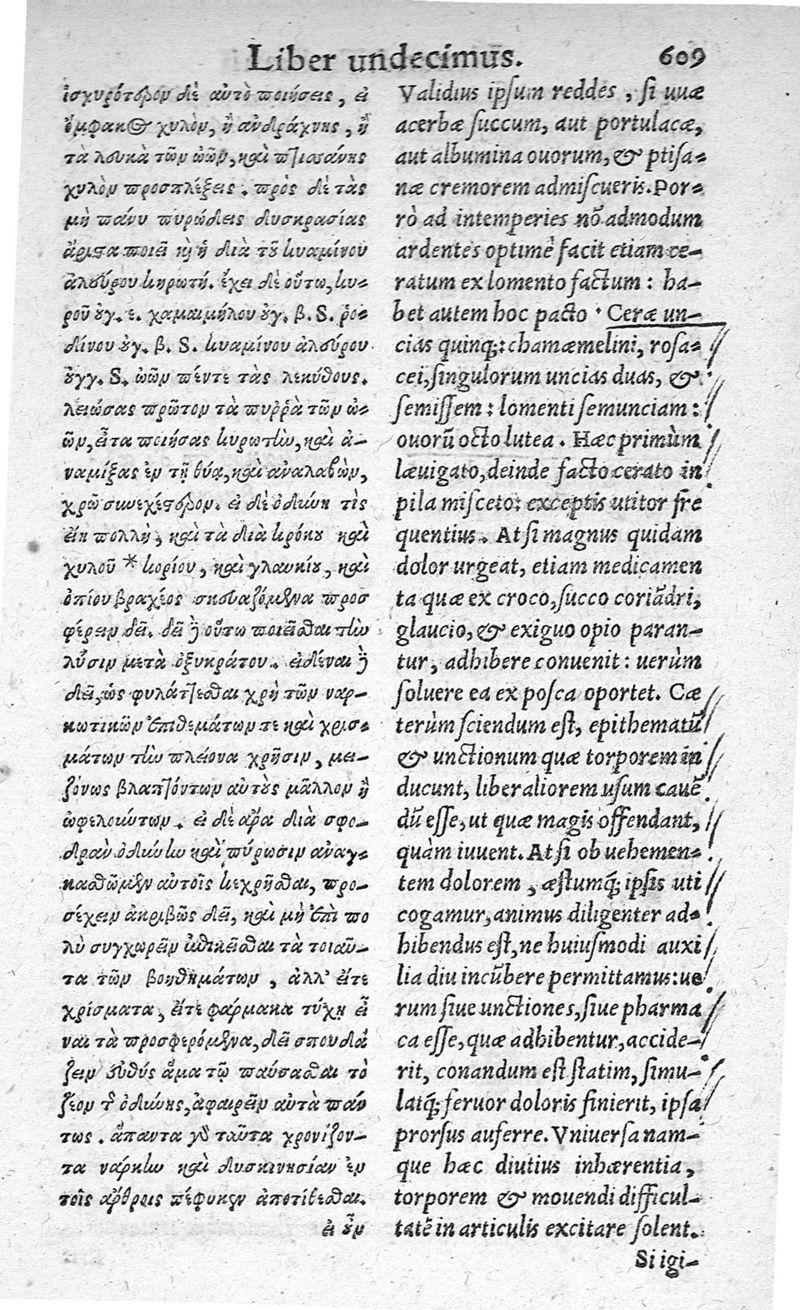 Liber undecimus. 609
ἰσχυρότερον δὲ αὐτὸ ποιήσεις, εἰ
ὄμφακος χυλὸν, ἢ ἀνδράχνης, ἢ
τὰ λευκὰ τῶν ὠῶν, καὶ πτισάνης
χυλὸν προσπλέξεις. πρὸς δὲ τὰς
μὴ πάνυ πυρώδεις δυσκρασίας
ἄριστα ποιεῖ κỳ ἡ διὰ τοῦ κυαμίνου
ἀλεύρου κηρωτή. ἔχει δὲ οὕτω, κη-
ροῦ ουγ. ε. χαμαιμήλου ουγ. β. S. ῥο-
δίνου ουγ. β. S. κυαμίνου ἀλεύρου
ουγγ. S. ὠῶν πέντε τὰς λεκύθους.
λειώσας πρῶτον τὰ πυῤῥὰ τῶν ὠ-
ῶν, εἶτα ποιήσας κυρωτὴν, καὶ ἀ-
ναμίξας ἐν τῇ θύᾳ, καὶ ἀναλαβὼν,
χρῶ συνεχέστερον. εἰ δὲ ὀδύνη τὶς
εἴη πολλὴ, καὶ τὰ διὰ κρόκου καὶ
χυλοῦ * κορίου, καὶ γλαυκίου, καὶ
ὀπίου βραχέος σκευαζόμενα προσ
φέρειν δεῖ. δεῖ ἢ οὕτω ποιεῖσθαι τὴν
λῦσιν μετὰ ὀξυκράτου. εἰδέναι ἢ
δεῖ, ὡς φυλάττεσθαι χρὴ τῶν ναρ-
κωτικῶν ἐπιθεμάτων τε καὶ χρισ-
μάτων τὴν πλείονα χρῆσιν, μει-
ζόνως βλαπτόντων αὐτοὺς μᾶλλον ἢ
ὠφελούντων. εἰ δὲ ἄρα διὰ σφο-
δρὰν ὀδύνην καὶ πύρωσιν ἀναγ-
κασθῶμεν αὐτοῖς κεχρῆσθαι, προ-
σέχειν ἀκριβῶς δεῖ, καὶ μὴ ἐπὶ πο
λὺ συγχωρεῖν ἐπικεῖσθαι τὰ τοιαῦ-
τα τῶν βοηθημάτων, ἀλλ' εἴτε
χρίσματα, εἴτε φάρμακα τύχῃ εἶ
ναι τὰ προσφερόμενα, δεῖ σπουδά
ζειν εὐθὺς ἅμα τῷ παύσασθαι τὸ
ζέον τῆς ὀδύνης, ἀφαιρεῖν αὐτὰ πάν
τως. ἅπαντα γὰρ ταῦτα χρονίζον-
τα νάρκην καὶ δυσκινησίαν ἐν
τοῖς ἄρθροις πέφυκεν ἀποτίθεσθαι.
εἰ οὖν
Validius ipsum reddes, si uuæ
acerbæ succum, aut portulacæ,
aut albumina ouorum, & ptisa-
næ cremorem admiscueris. Por-
rò ad intemperies nõ admodum
ardentes optimè facit etiam ce-
ratum ex lomento factum: ha-
bet autem hoc pacto. Ceræ un-
cias quinq;: chamæmelini, rosa-
cei, singulorum uncias duas, &
semissem: lomenti semunciam:
ouorũ octo lutea. Hæc primùm
læuigato, deinde facto cerato in
pila misceto: exceptis utitor fre
quentius. At si magnus quidam
dolor urgeat, etiam medicamen
ta quæ ex croco, succo coriãdri,
glaucio, & exiguo opio paran-
tur, adhibere conuenit: uerùm
soluere ea ex posca oportet. Cæ
terùm sciendum est, epithematũ
& unctionum quæ torporem in
ducunt, liberaliorem usum cauẽ
dũ esse, ut quæ magis offendant,
quàm iuuent. At si ob uehemen-
tem dolorem, æstumq; ipsis uti
cogamur, animus diligenter ad-
hibendus est, ne huiusmodi auxi
lia diu incũbere permittamus: ue
rum siue unctiones, siue pharma
ca esse, quæ adhibentur, accide-
rit, conandum est statim, simu-
latq; feruor doloris finierit, ipsa
prorsus auferre. Vniuersa nam-
que hæc diutius inhærentia,
torporem & mouendi difficul-
tatẽ in articulis excitare solent.
Si igi-